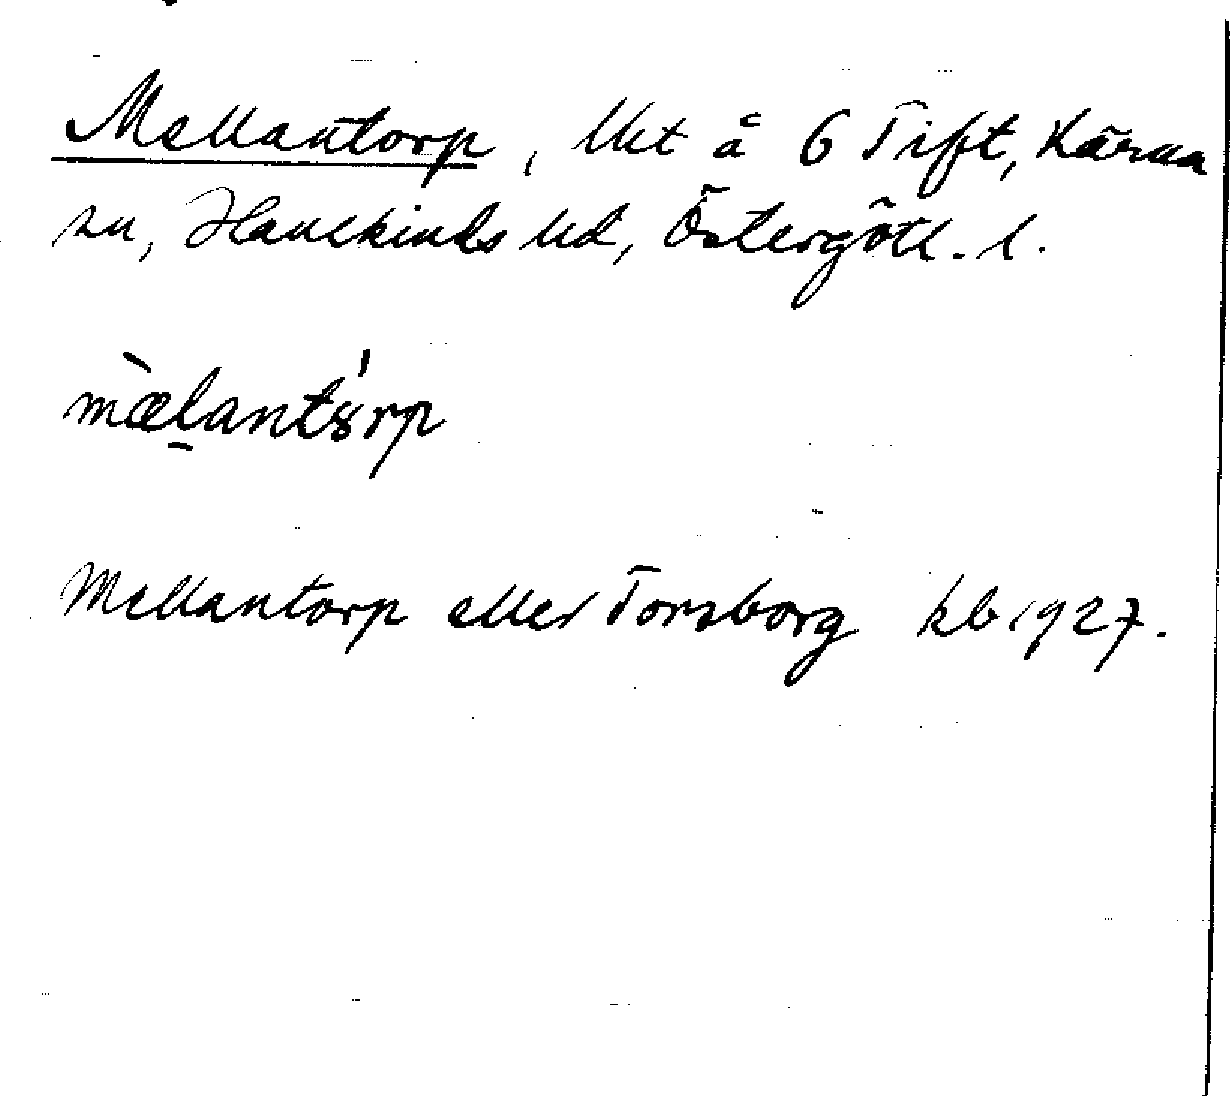 Mellantorp, lht å 6 Tift, Kärna
sn, Hanekinds hd, Östergötl. l.
mæ̀lantọ́rp
Mellantorp eller Torsborg kb 1927.